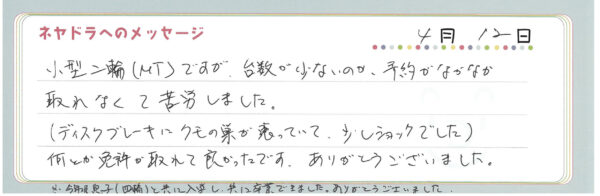 ネヤドラへのメッセージ
4月 12日
小型二輪(MT)ですが、台数が少ないのか、予約がなかなか
取れなくて苦労しました。
(ディスクブレーキにクモの巣が張っていて、少しショックでした)
何とか免許が取れて良かったです。ありがとうございました。
息子(四輪)と共に入学し、共に卒業できました。ありがとうございました。